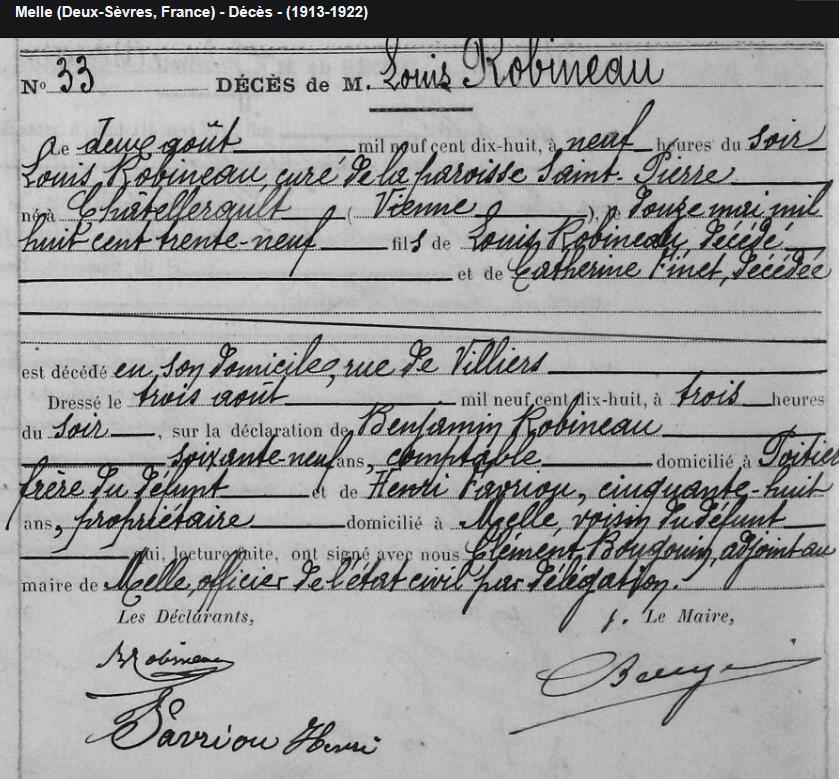 Melle (Deux-Sèvres, France) - Décès - (1913-1922)
No 33 DÉCÈS de M. Louis Robineau
Le deux août mil neuf cent dix-huit, à neuf heures du soir
Louis Robineau, curé de la paroisse Saint-Pierre
né à Châtellerault (Vienne), le douze mai mil
huit cent trente-neuf fils de Louis Robineau, décédé
et de Catherine Finet, décédée
est décédé en son domicile, rue de Villiers
Dressé le trois août mil neuf cent dix-huit, à trois heures
du soir, sur la déclaration de Benjamin Robineau
soixante-neuf ans, comptable domicilié à Poitiers
frère du défunt et de Henri Favriou, cinquante-huit
ans, propriétaire domicilié à Melle, voisin du défunt
qui, lecture faite, ont signé avec nous Clément Bougouin, adjoint au
maire de Melle, officier de l'état civil par délégation.
Les Déclarants, p. Le Maire,
BRobineau
Favriou Henri